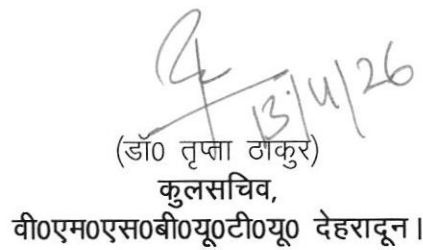 13/4/26
(डॉ0 तृप्ता ठाकुर)
कुलसचिव,
वी0एम0एस0बी0यू0टी0यू0 देहरादून।